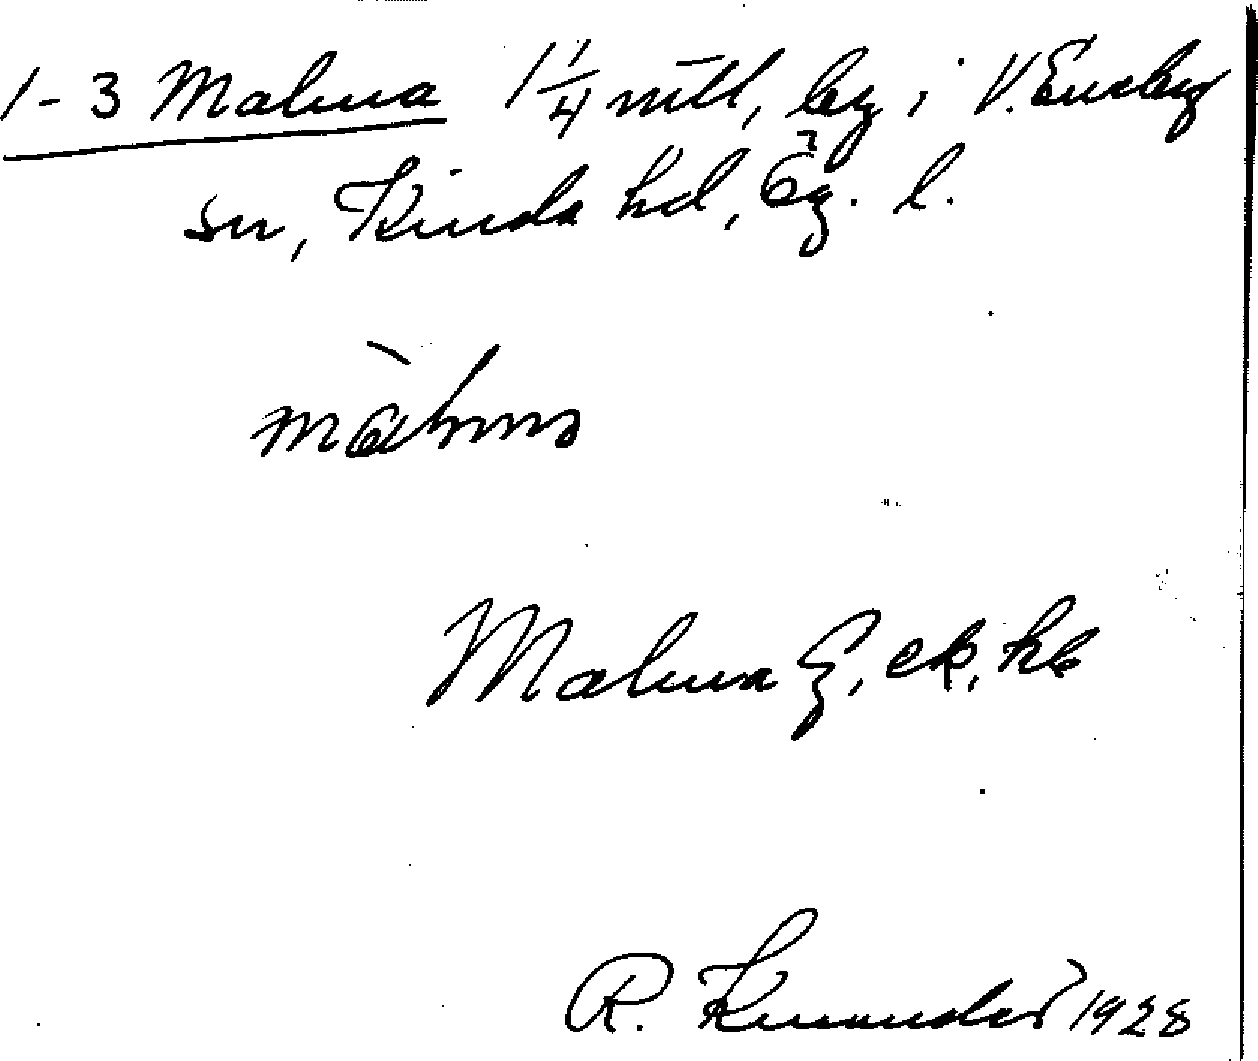 1-3 Malma 1 1/4 mtl, by i V. Eneby
sn, Kinda hd, Ög. l.
Malma G, ek, kb
R. Kinander 1928